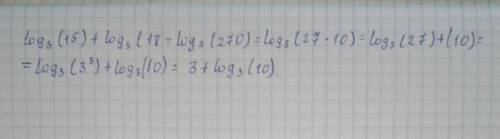 log₃(15) + log₃(18 = log₃(270) = log₃(27·10) = log₃(27)+(10)=
= log₃(3³)+log₃(10) = 3 + log₃(10)